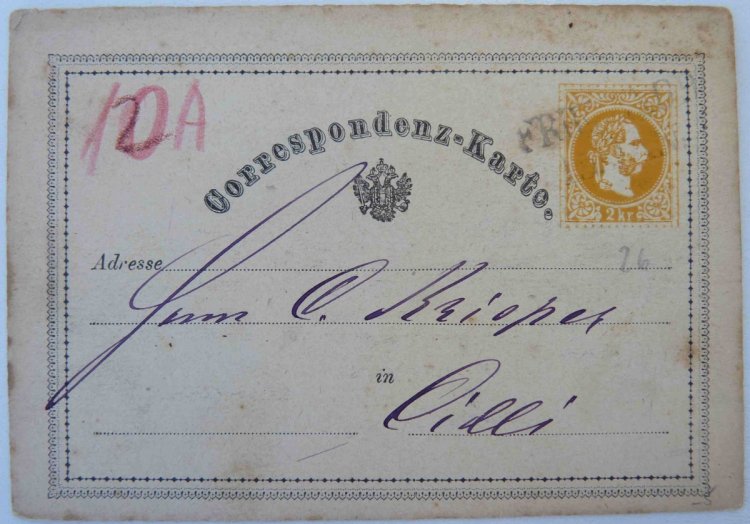 10A
2
Correspondenz-Karte.
FRE
2 kr
26
Adresse
Herrn C. Krisper
in
Cilli